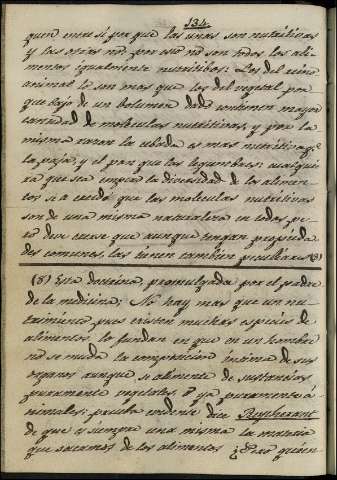 134.
quen entre si por que las unas son nutritivas
y las otras no: por esto no son todos los ali-
mentos igualmente nutritibos: Los del reino
animal lo son mas que los del vegetal por
que bajo de un bolumen dado contienen mayor
cantidad de moleculas nutritivas, y por la
misma razon la cebada es mas nutritiva q.e
la paja; y el pan que las legumbres: cualquie
ra que sea empero la diversidad de los alimen-
tos si a creido que las moleculas nutritivas
son de una misma naturaleza en todos pe-
ro deve creerse que aunque tengan propieda
des comunes, las tienen tambien peculiares (8)
(8) Esta doctrina, promulgada por el padre
de la medicina; No hay mas que un nu-
trimiento pues existen muchas especies de
alimentos lo fundan en que en un hombre
no se muda la composicion intima de sus
organos aunque se alimente de sustancias
puramente vegetales, o ya puramente á-
nimales: prueba evidente dice Richerand
de que es siempre una misma la materia
que sacamos de los alimentos ¿Pero quien